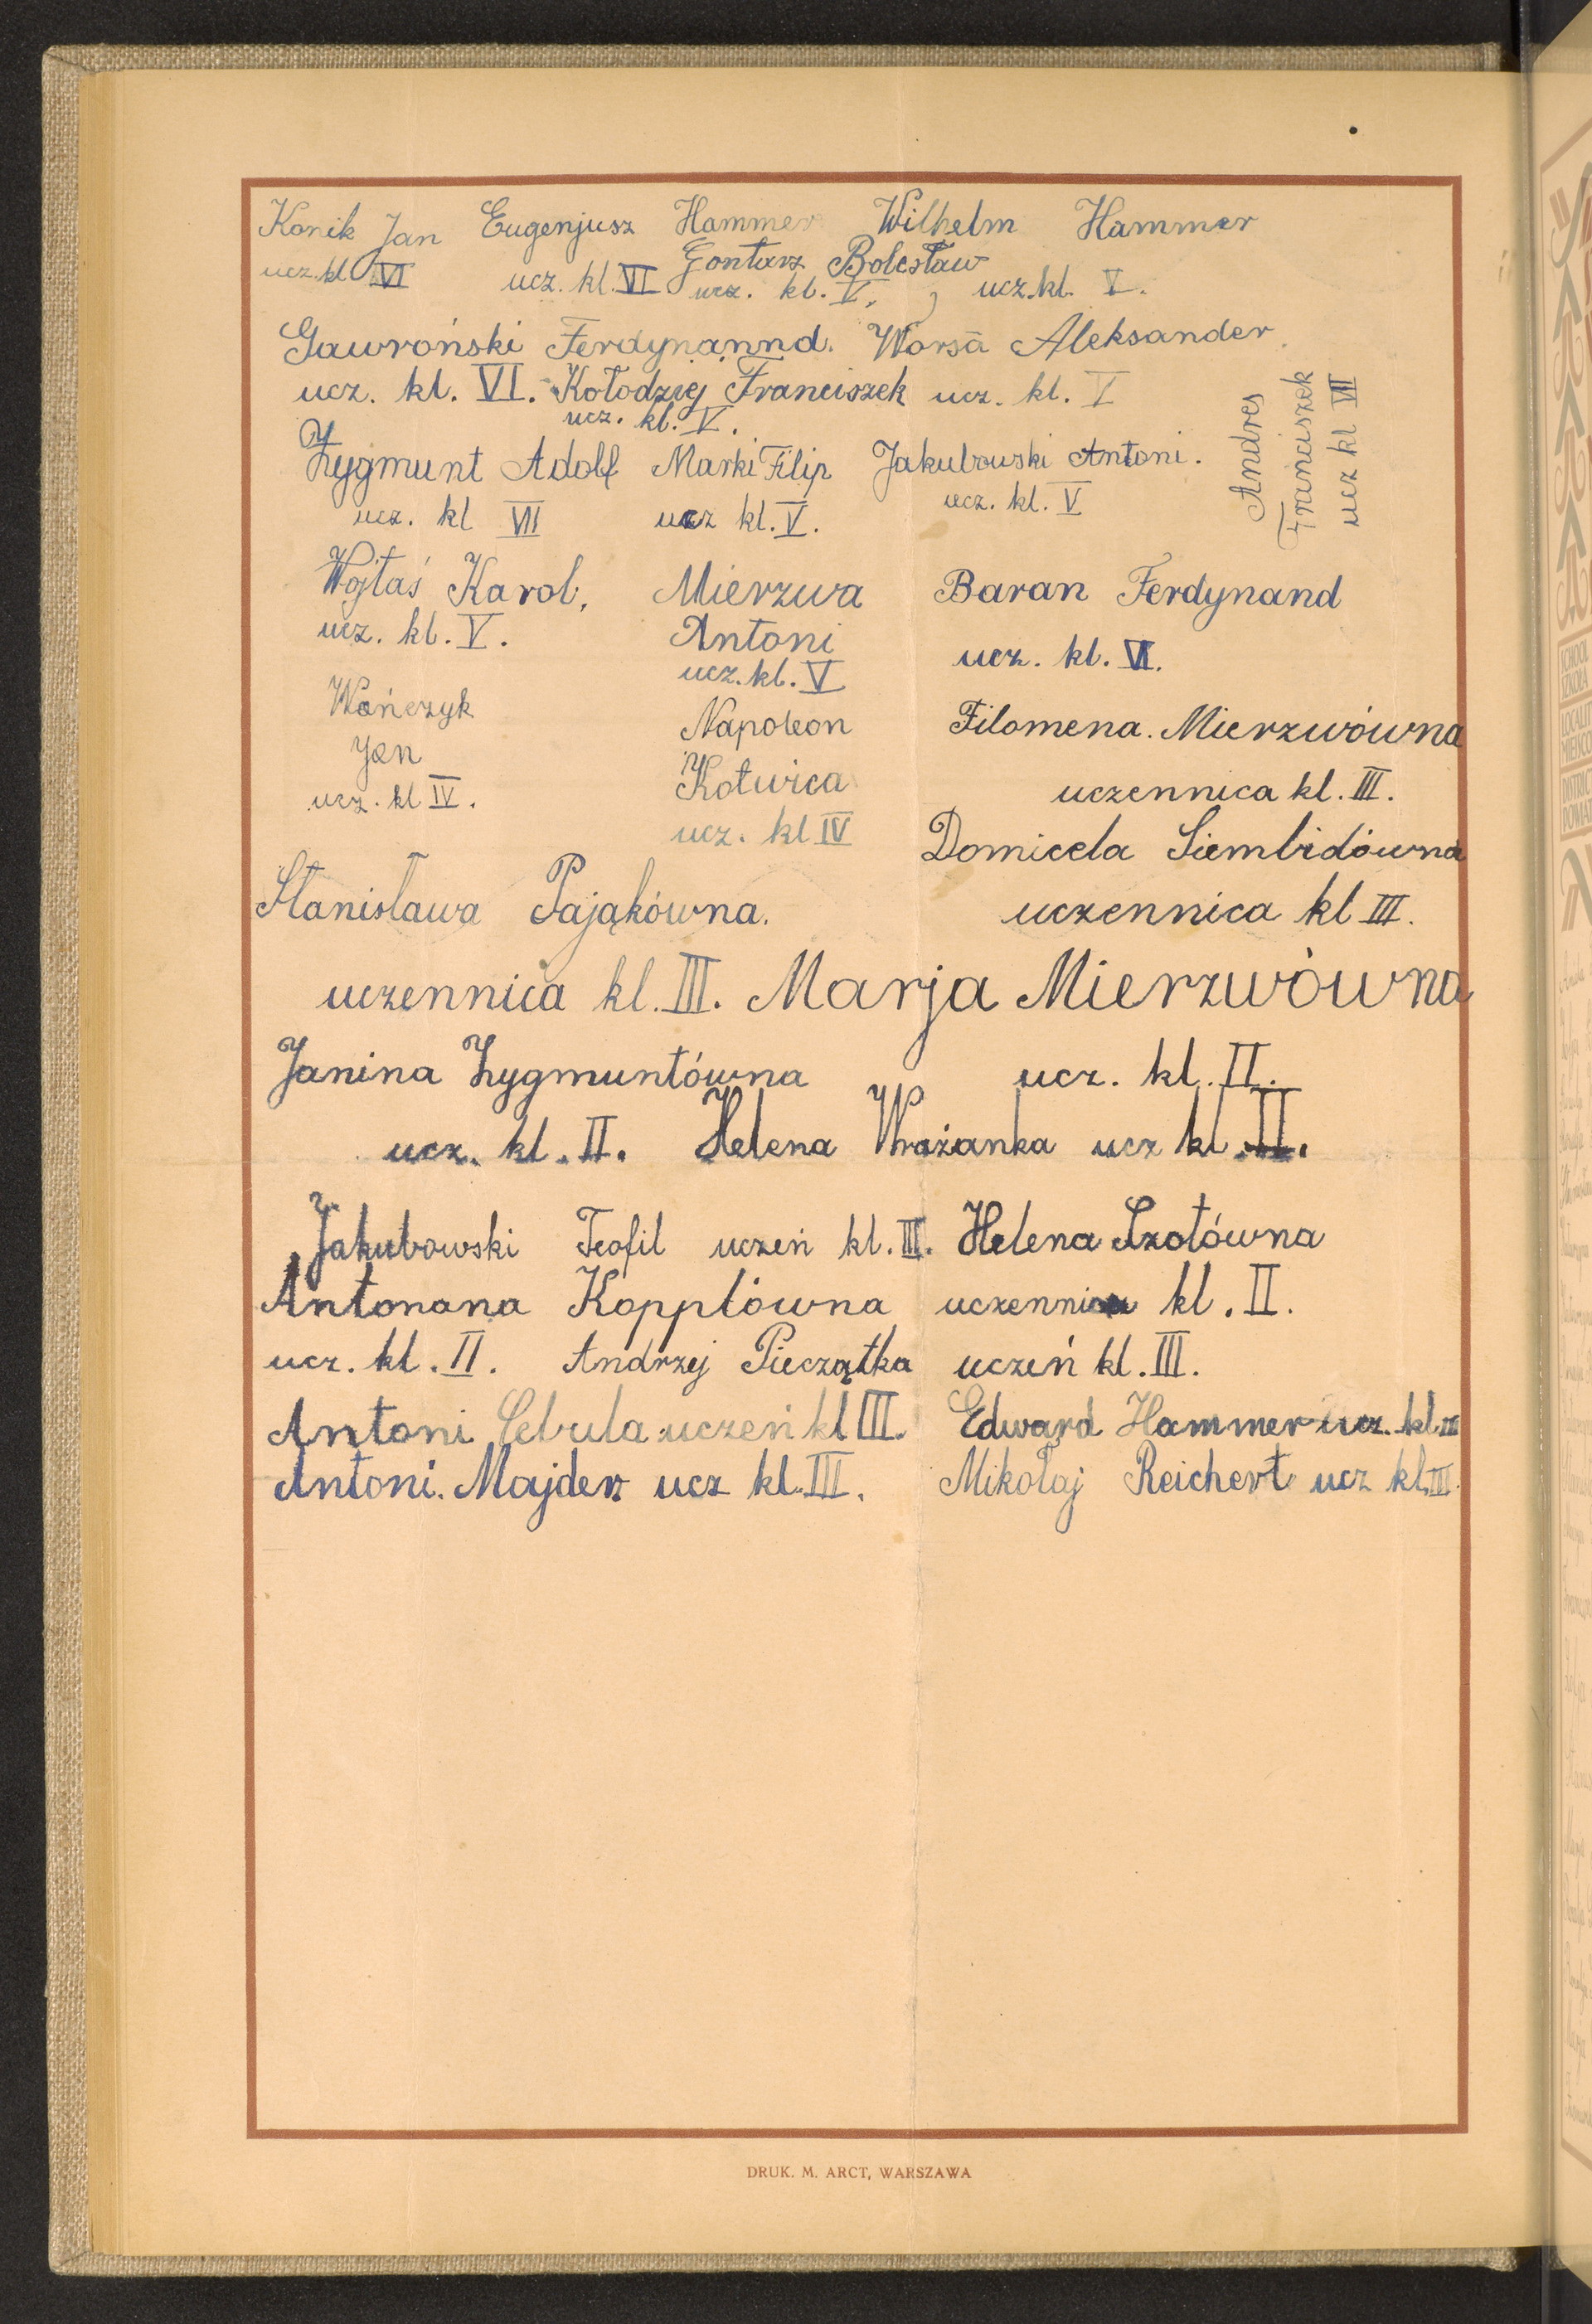 Konik Jan Eugenjusz Hammer Wilhelm Hammer
ucz. kl. VI ucz. kl. VI Gontarz Bolesław
ucz. kl. V, ucz. kl. V.
Gawroński Ferdynannd. Worsa Aleksander.
ucz. kl. VI. Kołodziej Franciszek ucz. kl. V
ucz. kl. V.
Andres
Franciszek
ucz kl VII
Zygmunt Adolf Marki Filip Jakubowski Antoni.
ucz. kl VII ucz kl. V. ucz. kl. V
Wojtaś Karol, Mierzwa Baran Ferdynand
ucz. kl. V. Antoni ucz. kl. VI.
ucz. kl. V
Wańczyk Napoleon Filomena. Mierzwówna
Jan Kotwica uczennica kl. III.
ucz. kl IV. ucz. kl IV Domicela Siembidówna
Stanisława Pająkówna. uczennica kl III.
uczennica kl. III. Marja Mierzwówna
Janina Zygmuntówna ucz. kl. II.
ucz. kl. II. Helena Wrażanka ucz kl. II.
Jakubowski Teofil uczeń kl. III. Helena Szotówna
Antonana Kopplówna uczennica kl. II.
ucz. kl. II. Andrzej Pieczątka uczeń kl. III.
Antoni Cebula uczeń kl III. Edward Hammer ucz. kl. III
Antoni. Majder ucz kl. III. Mikołaj Reichert ucz kl. III.
DRUK. M. ARCT, WARSZAWA